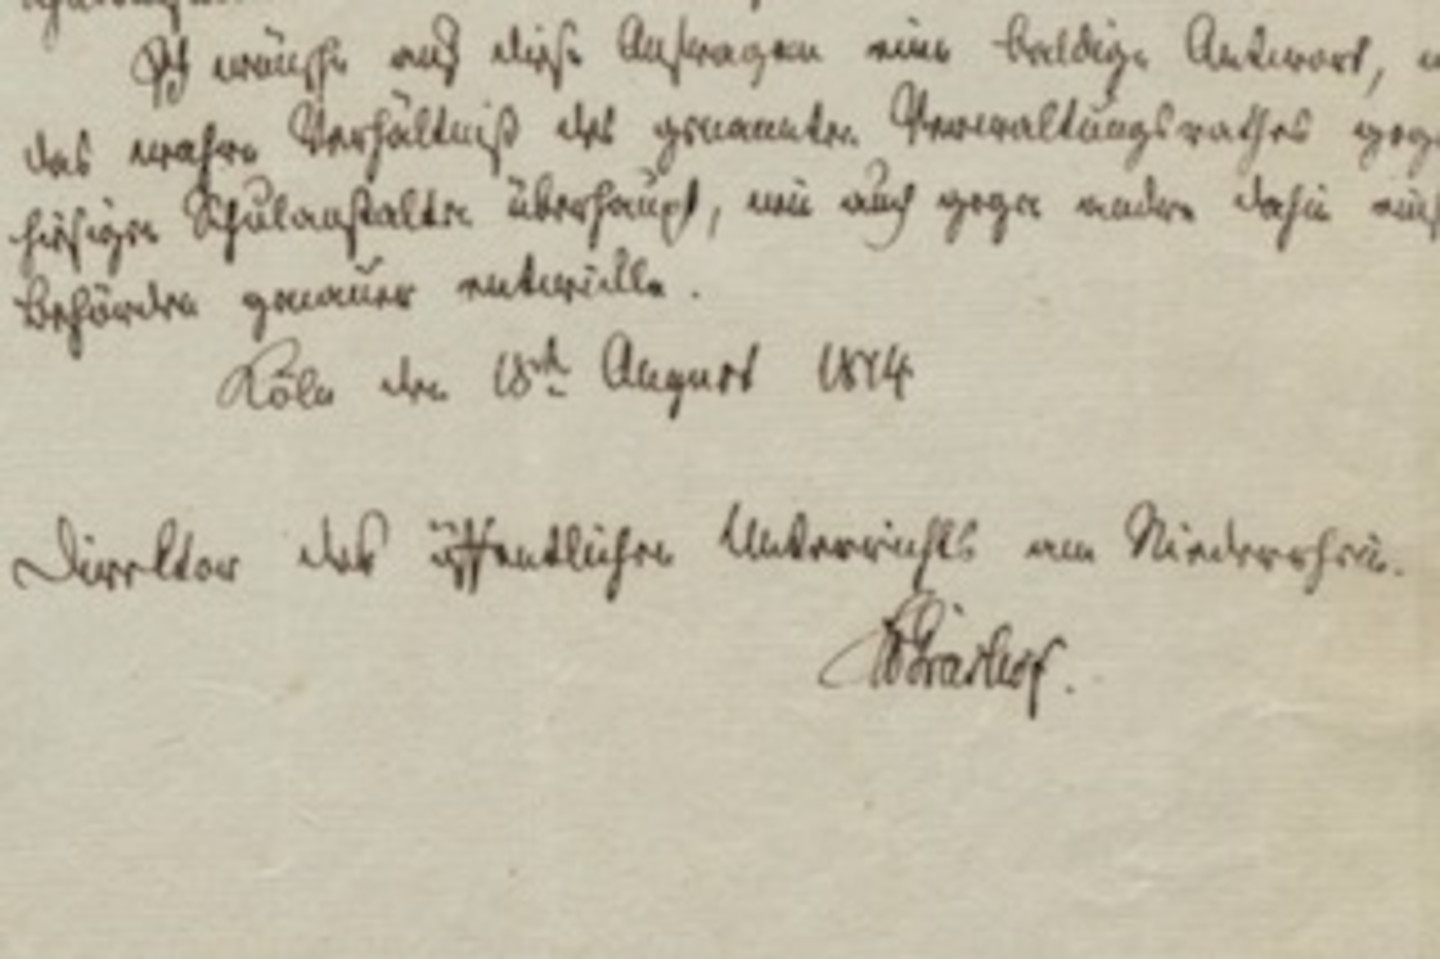 Ich wünsche auf diese Anfragen eine baldige Antwort,
das wahre Verhältniß des genannten Verwaltungsrathes
hiesigen Schulanstalten überhaupt, wie auch gegen andere dahin
Behörden genauer entwickle.
Köln den 18ten August 1814
Direktor des öffentlichen Unterrichts am Niederrhein.
Grashof.